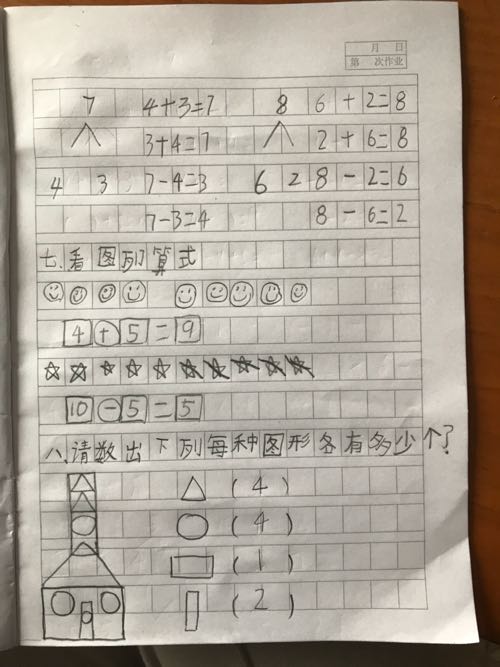 月 日
第 次作业
7 4+3=7 8 6+2=8
3+4=7 2+6=8
4 3 7-4=3 6 2 8-2=6
7-3=4 8-6=2
七.看图列算式
4+5=9
10-5=5
八.请数出下列每种图形各有多少个?
(4)
(4)
(1)
(2)